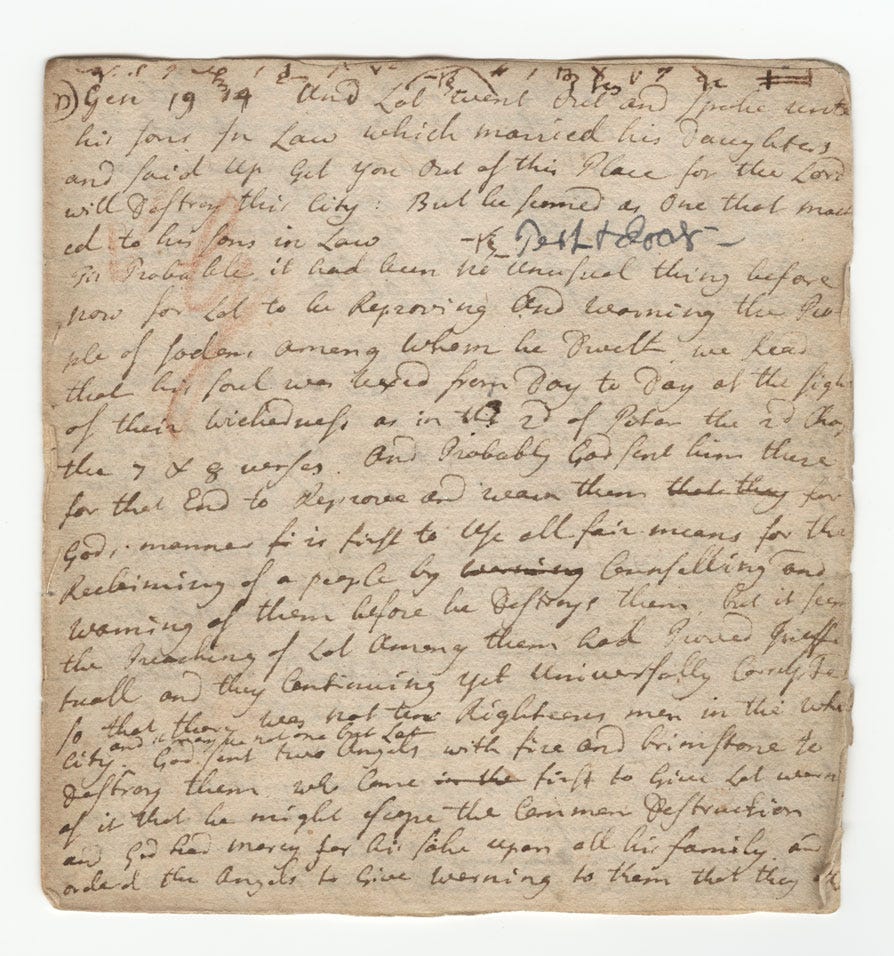 Gen 19 14 And Lot went Out and Spoke unto
his sons In Law which married his Daughters
and said Up Get you Out of this Place for the Lord
will Destroy this City: But he seemed as One that mock
ed to his sons in Law
Tis Probable it had been no Unusual thing before
now for Lot to be Reproving And warning the Peo
ple of sodom, among Whom he Dwelt we Read
that his soul was vexed from Day to Day at the sight
of their wickedness as in the 2d of Peter the 2d Chap
the 7 & 8 verses. And Probably God sent him there
for that End to Reprove and warn them that they for
Gods manner is first to Use all fair means for the
Reclaiming of a people by warning Counselling and
warning of them before he Destroys them, but it seems
the Preaching of Lot Among them had Proved Ineffec
tuall and they Continuing yet Universally Corrupt
so that there was not ten Righteous men in the whole
and it may be not one but Lot
City. God sent two Angels with fire and brimstone to
Destroy them, who Came in the first to Give Lot warn
of it that he might escape the Common Destruction
and God had mercy for his sake upon all his family and
orderd the Angels to Give warning to them that they